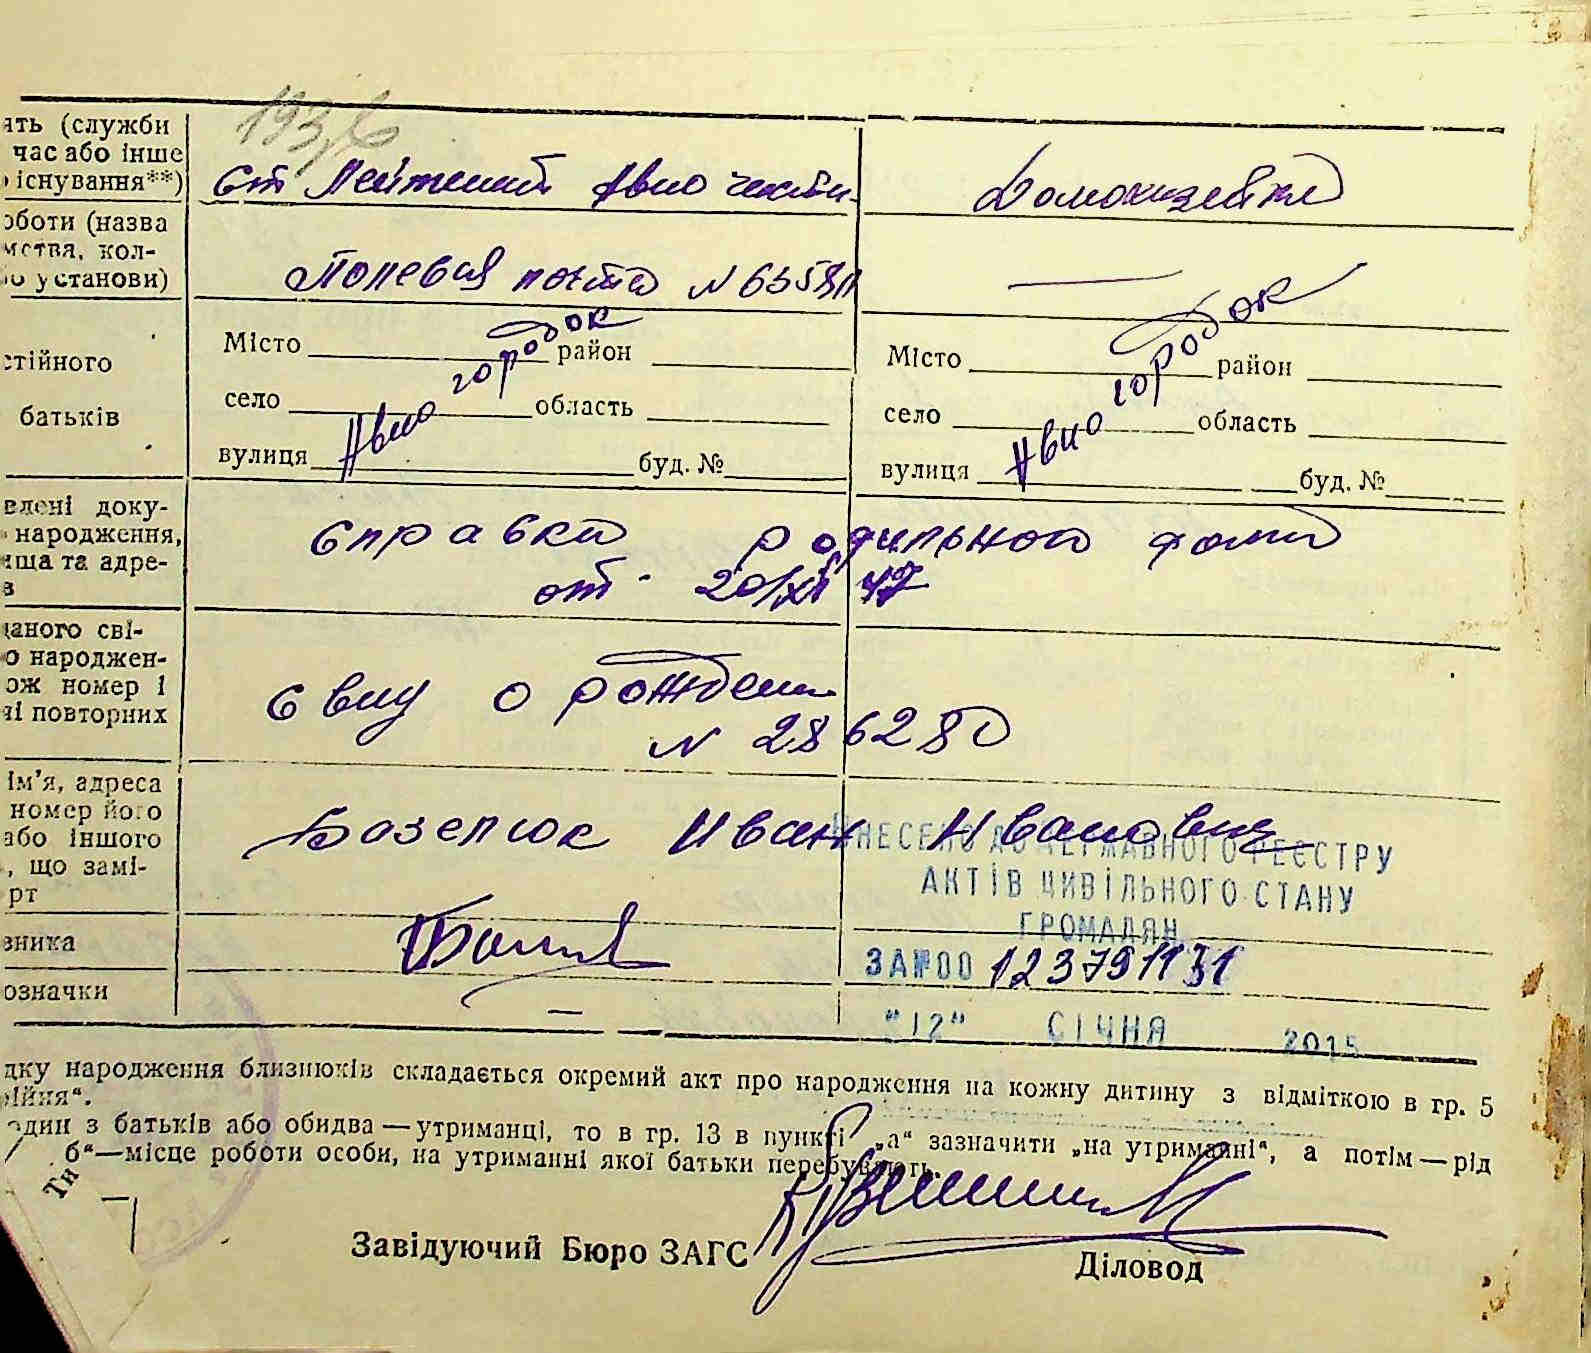 ять (служби
час або інше
існування**)
Ст Лейтенант Авио части
Домохозяйка
оботи (назва
мства, кол-
о установи)
Полевая почта N
—
стійного
батьків
Місто район
село область
вулиця буд. №
Авио городок
Місто район
село область
вулиця буд. №
Авио городок
влені доку-
народження,
ища та адре-
в
Справка родильного дома
от 20/XII 47
даного сві-
о народжен-
ож номер і
ні повторних
Св ву о рожден
N 286280
ім’я, адреса
номер його
або іншого
, що замі-
рт
Базелюк Иван Иванович
ВНЕСЕНО ДО ДЕРЖАВНОГО РЕЄСТРУ
АКТІВ ЦИВІЛЬНОГО СТАНУ
ГРОМАДЯН
вника
ЗА №00 123791131
означки
—
"12" СІЧНЯ 2015
дку народження близнюків складається окремий акт про народження на кожну дитину з відміткою в гр. 5
ійня“.
один з батьків або обидва — утриманці, то в гр. 13 в пункті „а“ зазначити „на утриманні“, а потім — рід
б“—місце роботи особи, на утриманні якої батьки перебувають.
Завідуючий Бюро ЗАГС
Діловод